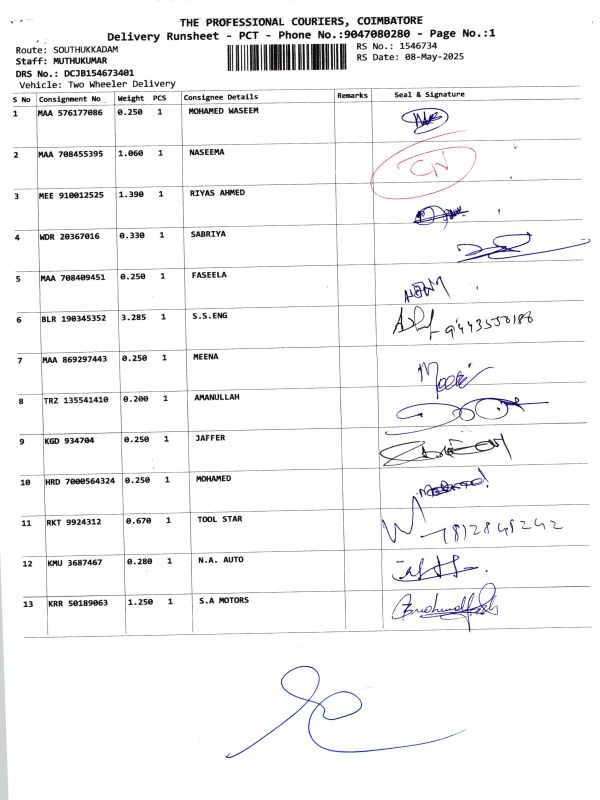 THE PROFESSIONAL COURIERS, COIMBATORE
Delivery Runsheet - PCT - Phone No.:9047080280 - Page No.:1
Route: SOUTHUKKADAM
RS No.: 1546734
Staff: MUTHUKUMAR
RS Date: 08-May-2025
DRS No.: DCJB154673401
Vehicle: Two Wheeler Delivery
S No Consignment No Weight PCS Consignee Details Remarks Seal & Signature
1 MAA 576177086 0.250 1 MOHAMED WASEEM
2 MAA 708455395 1.060 1 NASEEMA CN
3 MEE 910012525 1.390 1 RIYAS AHMED
4 WDR 20367016 0.330 1 SABRIYA
5 MAA 708409451 0.250 1 FASEELA
6 BLR 190345352 3.285 1 S.S.ENG
7 MAA 869297443 0.250 1 MEENA
8 TRZ 135541410 0.200 1 AMANULLAH
9 KGD 934704 0.250 1 JAFFER
10 HRD 7000564324 0.250 1 MOHAMED
11 RKT 9924312 0.670 1 TOOL STAR
12 KMU 3687467 0.280 1 N.A. AUTO
13 KRR 50189063 1.250 1 S.A MOTORS